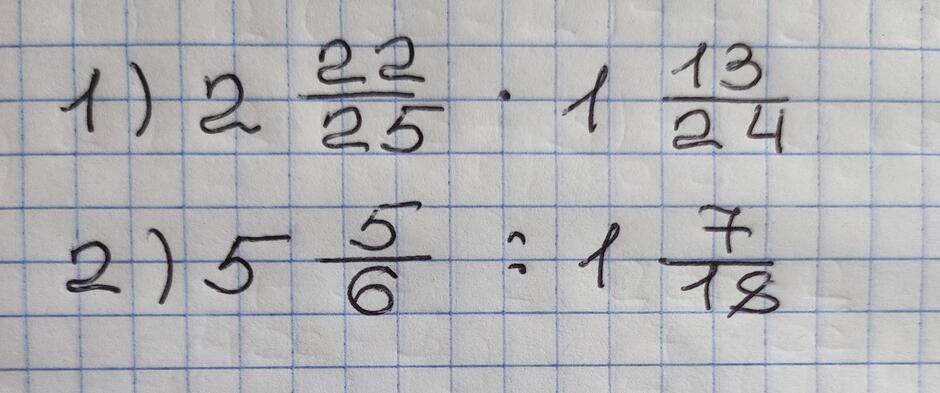 1) 2 22/25 · 1 13/24
2) 5 5/6 : 1 7/18